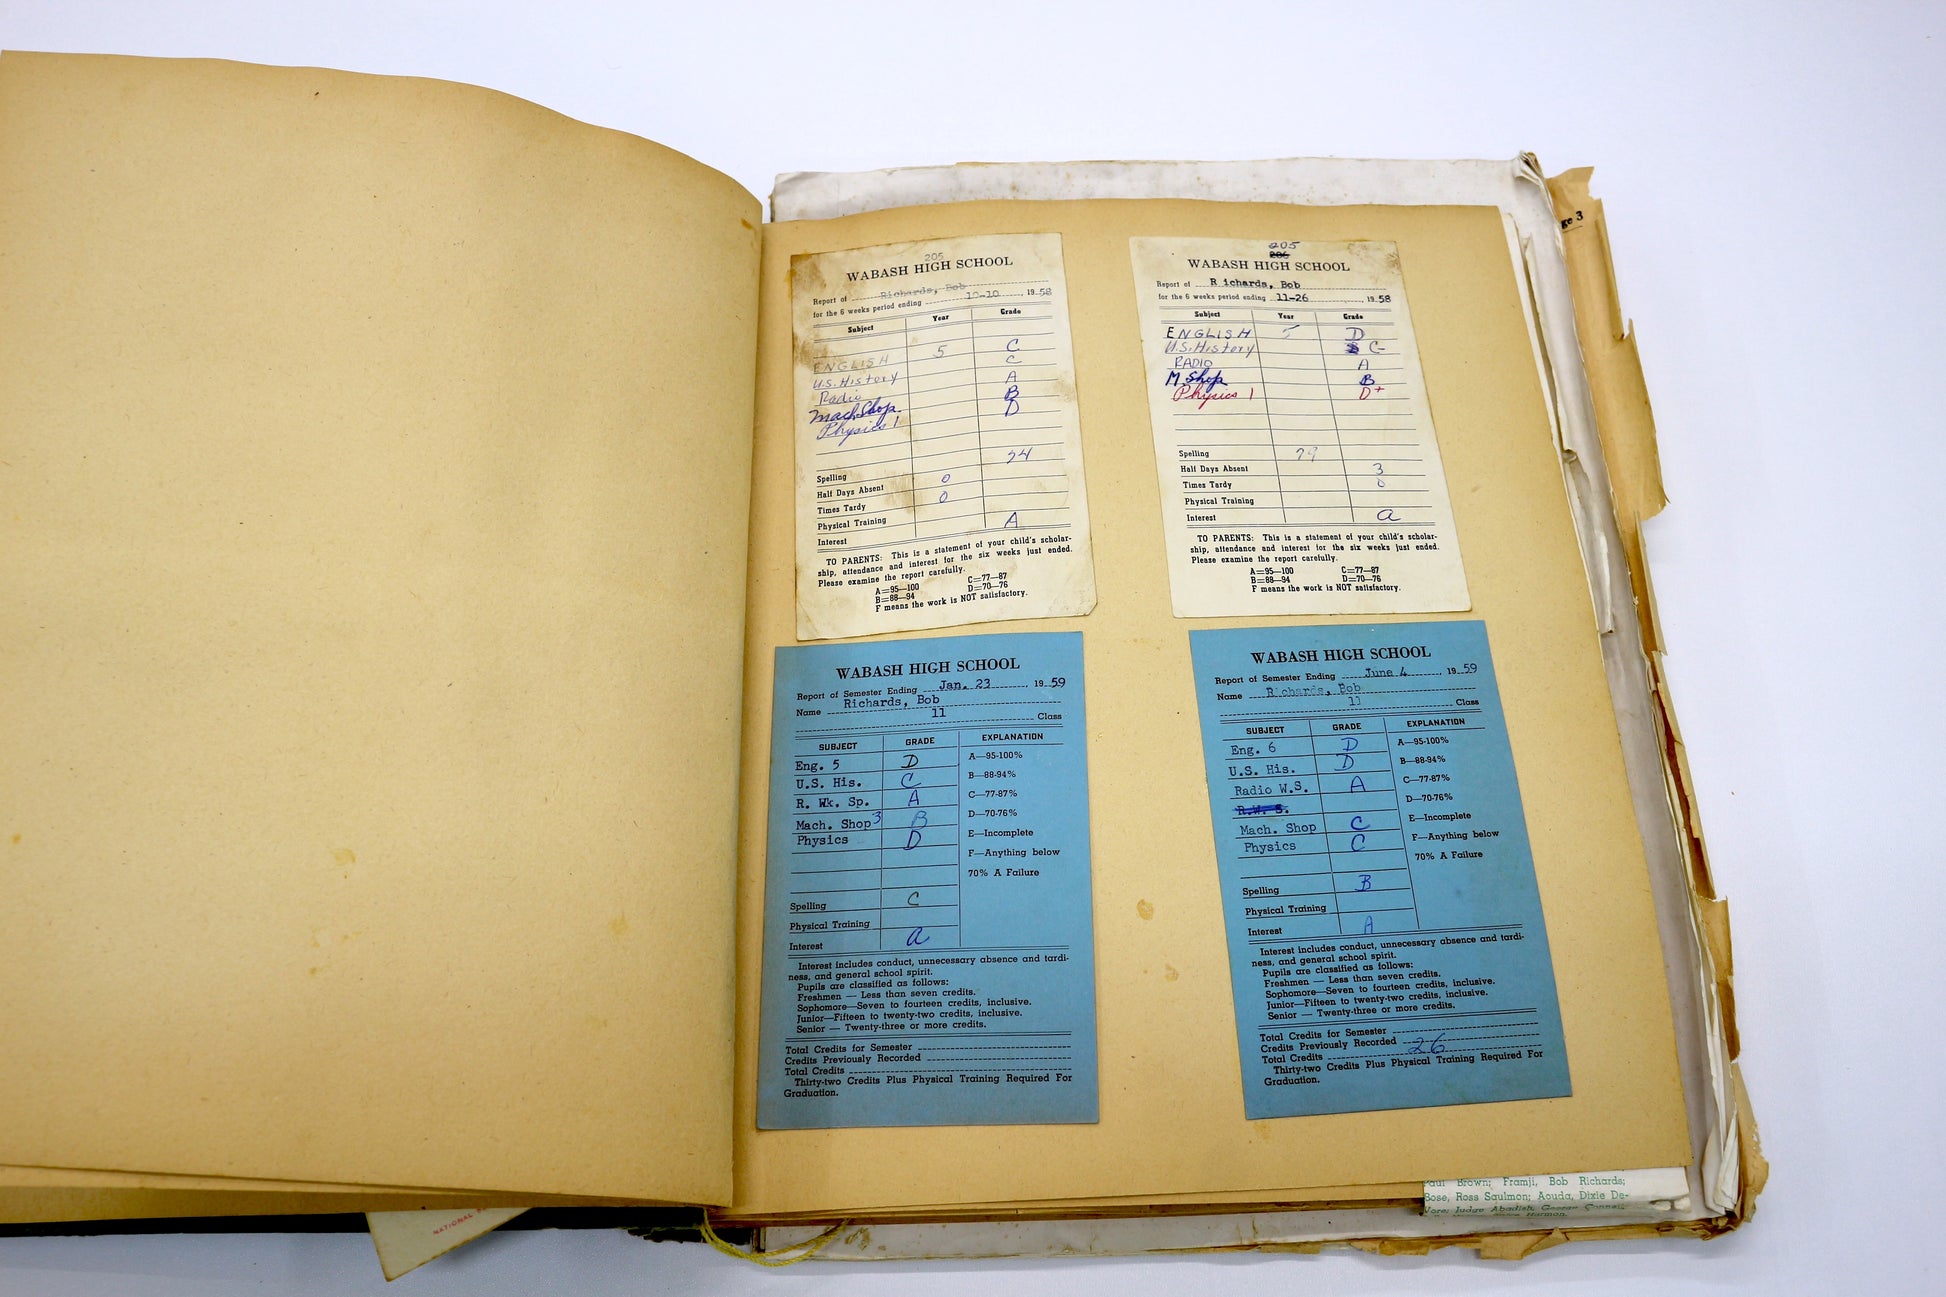 205
WABASH HIGH SCHOOL
Report of Richards, Bob
for the 6 weeks period ending 10-10, 1958
Subject Year Grade
ENGLISH 5 C
U.S. History C
Radio A
Mach Shop B
Physics 1 D
Spelling
Half Days Absent 0
Times Tardy 0
Physical Training
Interest A
TO PARENTS: This is a statement of your child's scholar-
ship, attendance and interest for the six weeks just ended.
Please examine the report carefully.
A=95—100 C=77—87
B=88—94 D=70—76
F means the work is NOT satisfactory.
205
206
WABASH HIGH SCHOOL
Report of R ichards, Bob
for the 6 weeks period ending 11-26, 1958
Subject Year Grade
ENGLISH 5 D
U.S. History C-
RADIO A
M. Shop B
Physics 1 D+
Spelling 79
Half Days Absent 3
Times Tardy 0
Physical Training
Interest a
TO PARENTS: This is a statement of your child's scholar-
ship, attendance and interest for the six weeks just ended.
Please examine the report carefully.
A=95—100 C=77—87
B=88—94 D=70—76
F means the work is NOT satisfactory.
WABASH HIGH SCHOOL
Report of Semester Ending Jan. 23, 1959
Name Richards, Bob
11 Class
SUBJECT GRADE EXPLANATION
Eng. 5 D A—95-100%
U.S. His. C B—88-94%
R. Wk. Sp. A C—77-87%
Mach. Shop 3 B D—70-76%
Physics D E—Incomplete
F—Anything below
70% A Failure
Spelling C
Physical Training
Interest a
Interest includes conduct, unnecessary absence and tardi-
ness, and general school spirit.
Pupils are classified as follows:
Freshmen — Less than seven credits.
Sophomore—Seven to fourteen credits, inclusive.
Junior—Fifteen to twenty-two credits, inclusive.
Senior — Twenty-three or more credits.
Total Credits for Semester
Credits Previously Recorded
Total Credits
Thirty-two Credits Plus Physical Training Required For
Graduation.
WABASH HIGH SCHOOL
Report of Semester Ending June 4, 1959
Name Richards, Bob
11 Class
SUBJECT GRADE EXPLANATION
Eng. 6 D A—95-100%
U.S. His. D B—88-94%
Radio W.S. A C—77-87%
R.W. S. D—70-76%
Mach. Shop C E—Incomplete
Physics C F—Anything below
70% A Failure
Spelling B
Physical Training
Interest A
Interest includes conduct, unnecessary absence and tardi-
ness, and general school spirit.
Pupils are classified as follows:
Freshmen — Less than seven credits.
Sophomore—Seven to fourteen credits, inclusive.
Junior—Fifteen to twenty-two credits, inclusive.
Senior — Twenty-three or more credits.
Total Credits for Semester
Credits Previously Recorded
Total Credits 26
Thirty-two Credits Plus Physical Training Required For
Graduation.
ge 3
Paul Brown; Framji, Bob Richards;
Bose, Ross Saulmon; Aouda, Dixie De-
Vore; Judge Abadish, George
NATIONAL